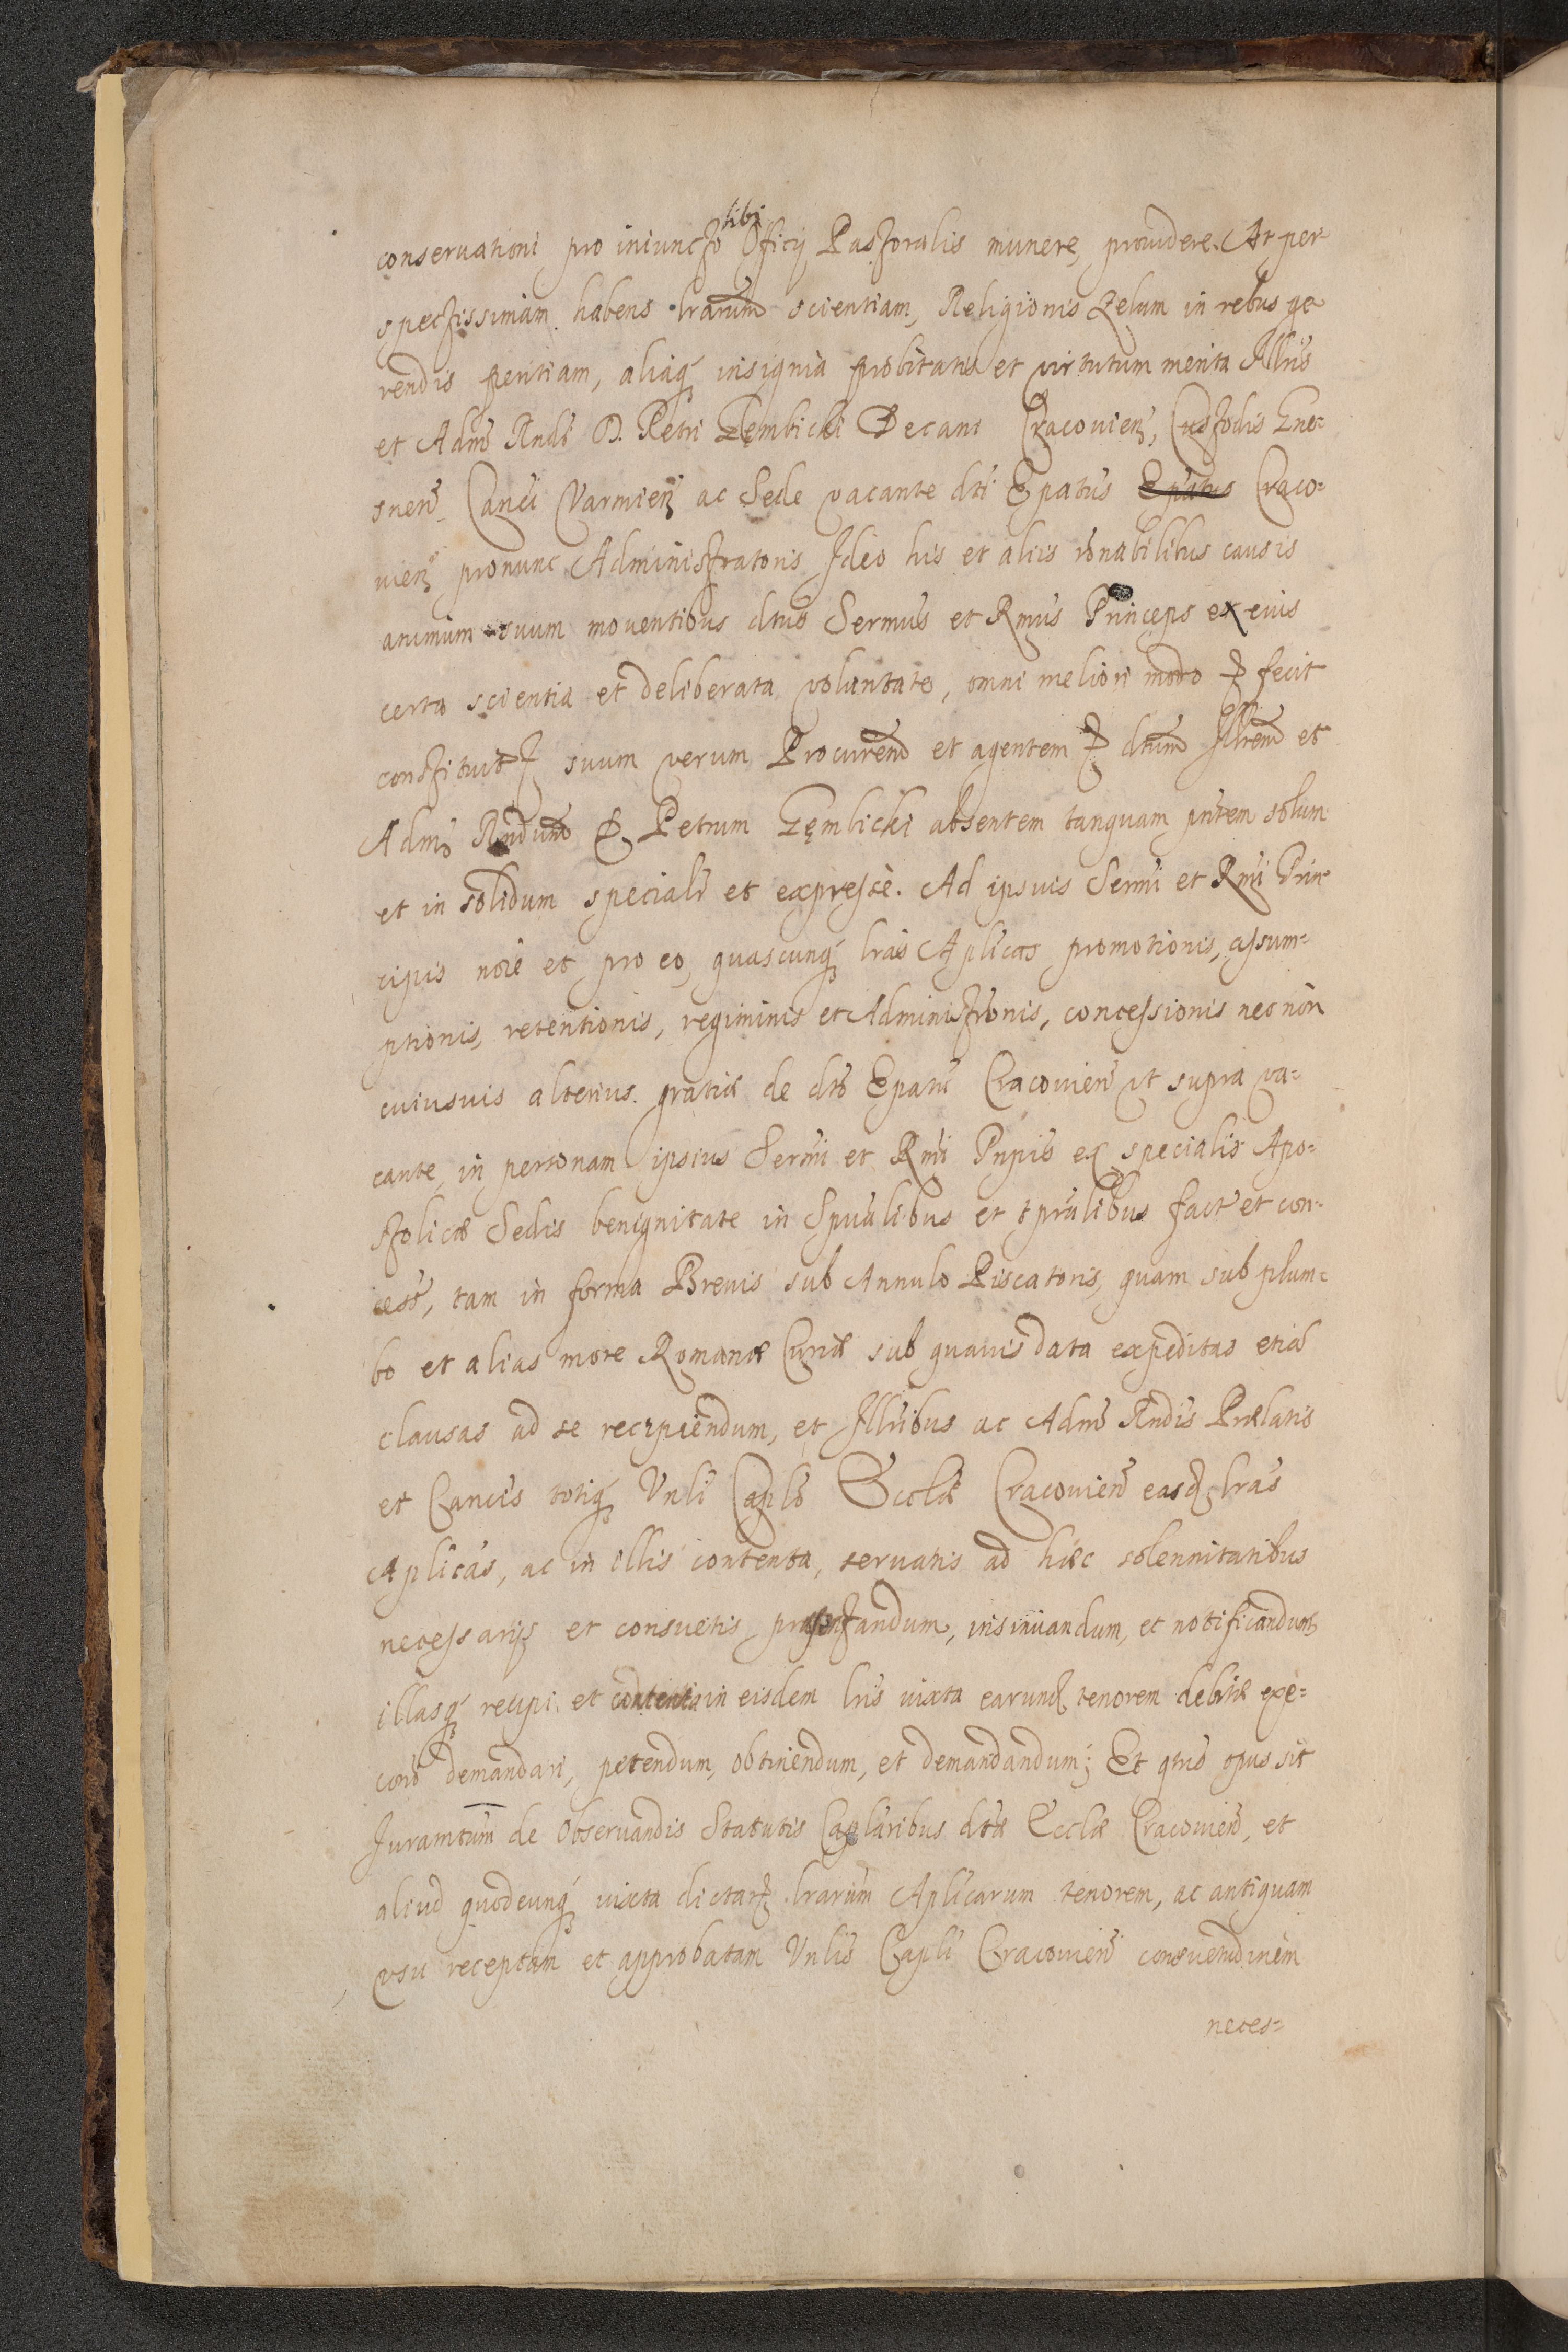 conservationi pro iniuncto sibi Officij Pastoralis munere, providere. At per-
spectissimam habens lrarum scientiam, Religionis Zelum in rebus ge
rendis peritiam, aliaq́ insignia probitatis et virtutum merita Illris
et Adm̃ Rndi D. Petri Gembicki Decani Cracovien̄, Custodis Gne-
snen̄ Canci Varmien̄ ac Sede vacante dti Epatus Epatus Craco-
vien̄ pronunc Administratoris Ideo his et aliis rōnabilibus causis
animum suum moventibus dtus Sermus et Rmus Princeps ex eius
certa scientia et deliberata voluntate, omni meliori modo & fecit
constituit & suum verum Procurēm et agentem & dtum Illrem et
Adm̃ Rndum D. Petrum Gembicki absentem tanquam pn̄tem solum
et in solidum specialr et expresse. Ad ipsius Sermi et Rmi Prin-
cipis noīe et pro eo, quascunq́ lras Aplicas promotionis, assum-
ptionis, retentionis, regiminis et Administrōnis, concessionis nec non
cuiusvis alterius gratiæ de dto Epatu Cracovien̄ ut supra va-
cante, in personam ipsius Sermi et Rmi Pnpis ex speciali Apo-
stolicæ Sedis benignitate in Spūalibus et tprālibus fact et con-
cess, tam in forma Brevis sub Annulo Piscatoris, quam sub plum-
bo et alias more Romanæ Curiæ sub quavis data expeditas etiā
clausas ad se recipiendum, et Illribus ac Adm̃ Rndis Prælatis
et Cancis totiq́ Vnli Caplo Ecclæ Cracovien̄ easd lras
Aplicas, ac in illis contenta, servatis ad hæc solennitatibus
necessarijs et consuetis præsentandum, insinuandum, et notificandum
illasq́ recipi et contenta in eisdem lris iuxta earund tenorem debitæ exe-
coni demandari, petendum, obtinendum, et demandandum; Et qtus opus sit
Iuramtum de Observandis Statutis Caplaribus dtæ Ecclæ Cracovien̄, et
aliud quodcunq́ iuxta dictar lrarum Aplicarum tenorem, ac antiquam
usu receptam et approbatam Vnlis Capli Cracovien̄ consuetudinem
neces-